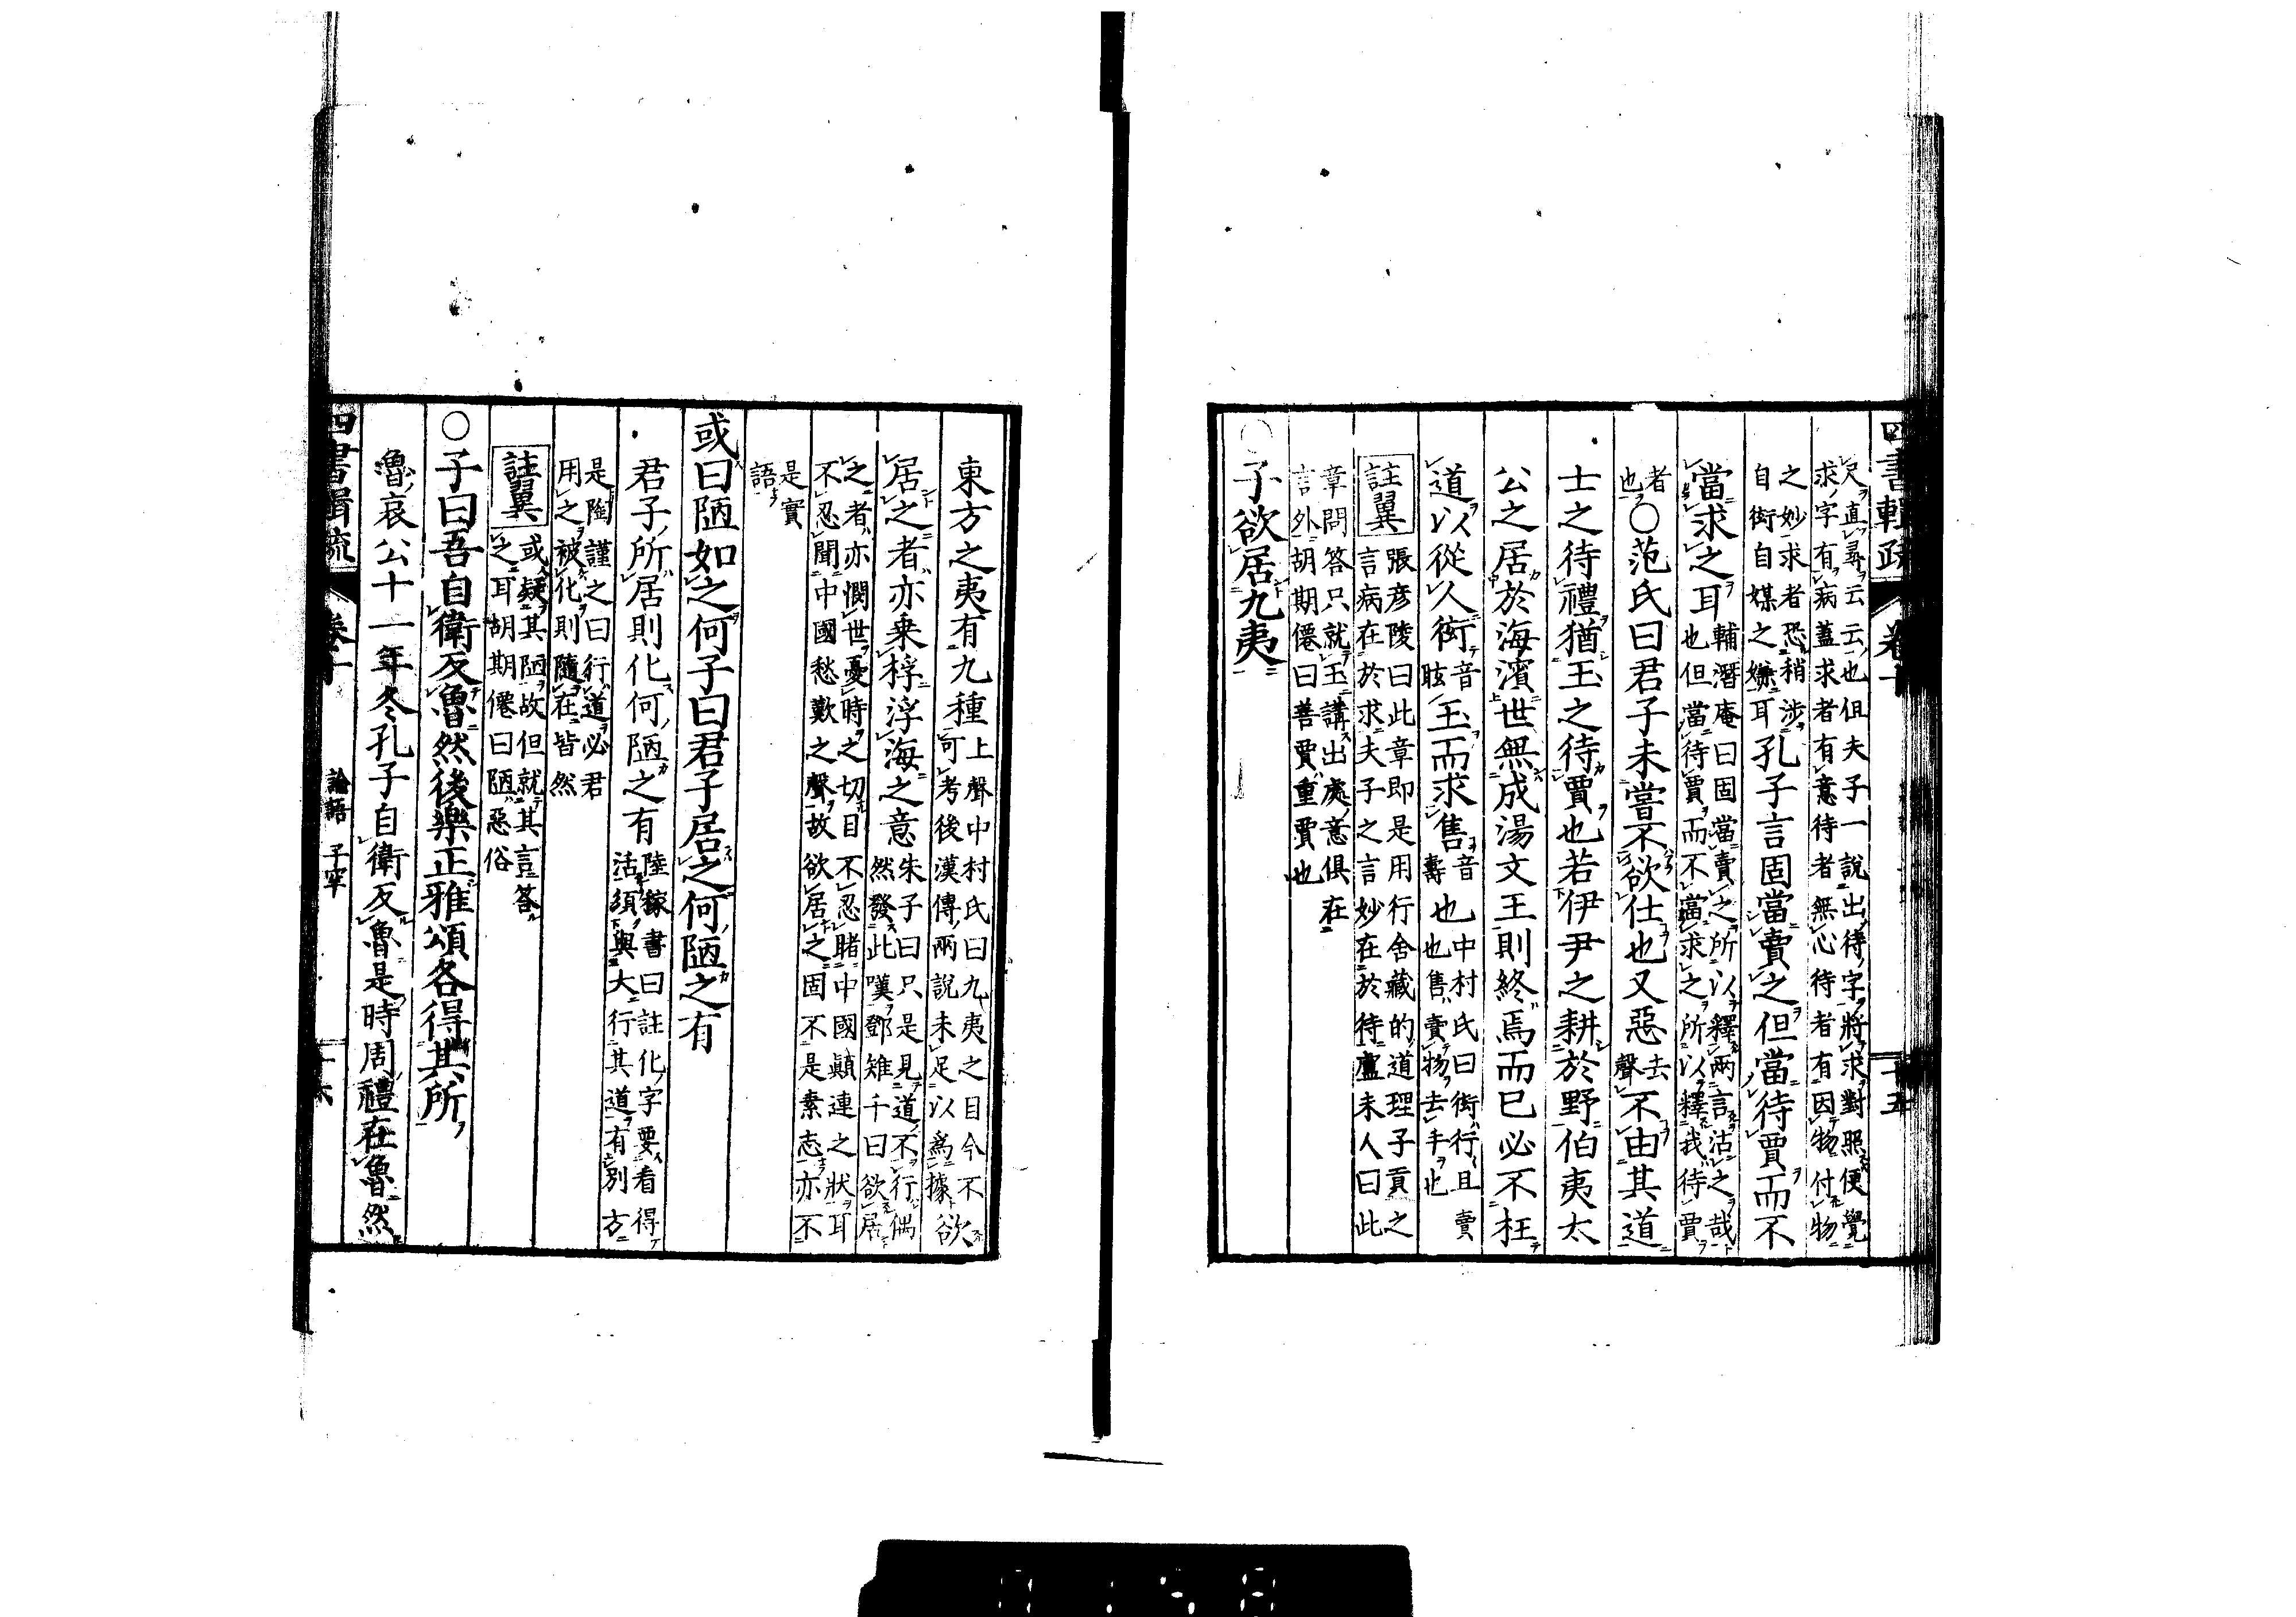 四書輯疏 卷十 十五
尺直尋云云也但夫子一說出待字將求對照便覺
求字有病蓋求者有意待者無心待者有因物付物
之妙求者恐稍涉
自衒自媒之嫌耳孔子言固當賣之但當待賈而不
當求之耳輔潛庵曰固當賣之所以釋兩言沽之哉
也但當待賈而不當求之所以釋我待賈
者
也〇范氏曰君子未嘗不欲仕也又惡去聲不由其道
士之待禮猶玉之待賈也若伊尹之耕於野伯夷太
公之居於海濱世無成湯文王則終焉而已必不枉
道以從人衒音眩玉而求售音壽也中村氏曰衒行且賣
也售賣物去手也
註翼張彦陵曰此章即是用行舍藏的道理子貢之
言病在於求夫子之言妙在於待盧未人曰此
章問答只就玉講出處意俱在
言外胡期僊曰善賈重賈也
〇子欲居九夷
東方之夷有九種上聲中村氏曰九夷之目今不
可考後漢傳兩說未足以爲據欲
居之者亦乗桴浮海之意朱子曰只是見道不行偶
然發此嘆鄧雉千曰欲居
之者亦憫世憂時之切目不忍睹中國顚連之狀耳
不忍聞中國愁歎之聲故欲居之固不是素志亦不
是實
語
或曰陋如之何子曰君子居之何陋之有
君子所居則化何陋之有陸稼書曰註化字要看得
活須與大行其道有別方
是陸謹之曰行道必君
用之被化則隨在皆然
註翼或疑其陋故但就其言答
之耳胡期僊曰陋惡俗
〇子曰吾自衛反魯然後樂正雅頌各得其所
魯哀公十一年冬孔子自衛反魯是時周禮在魯然
四書輯疏 卷十 論語 子罕 十六